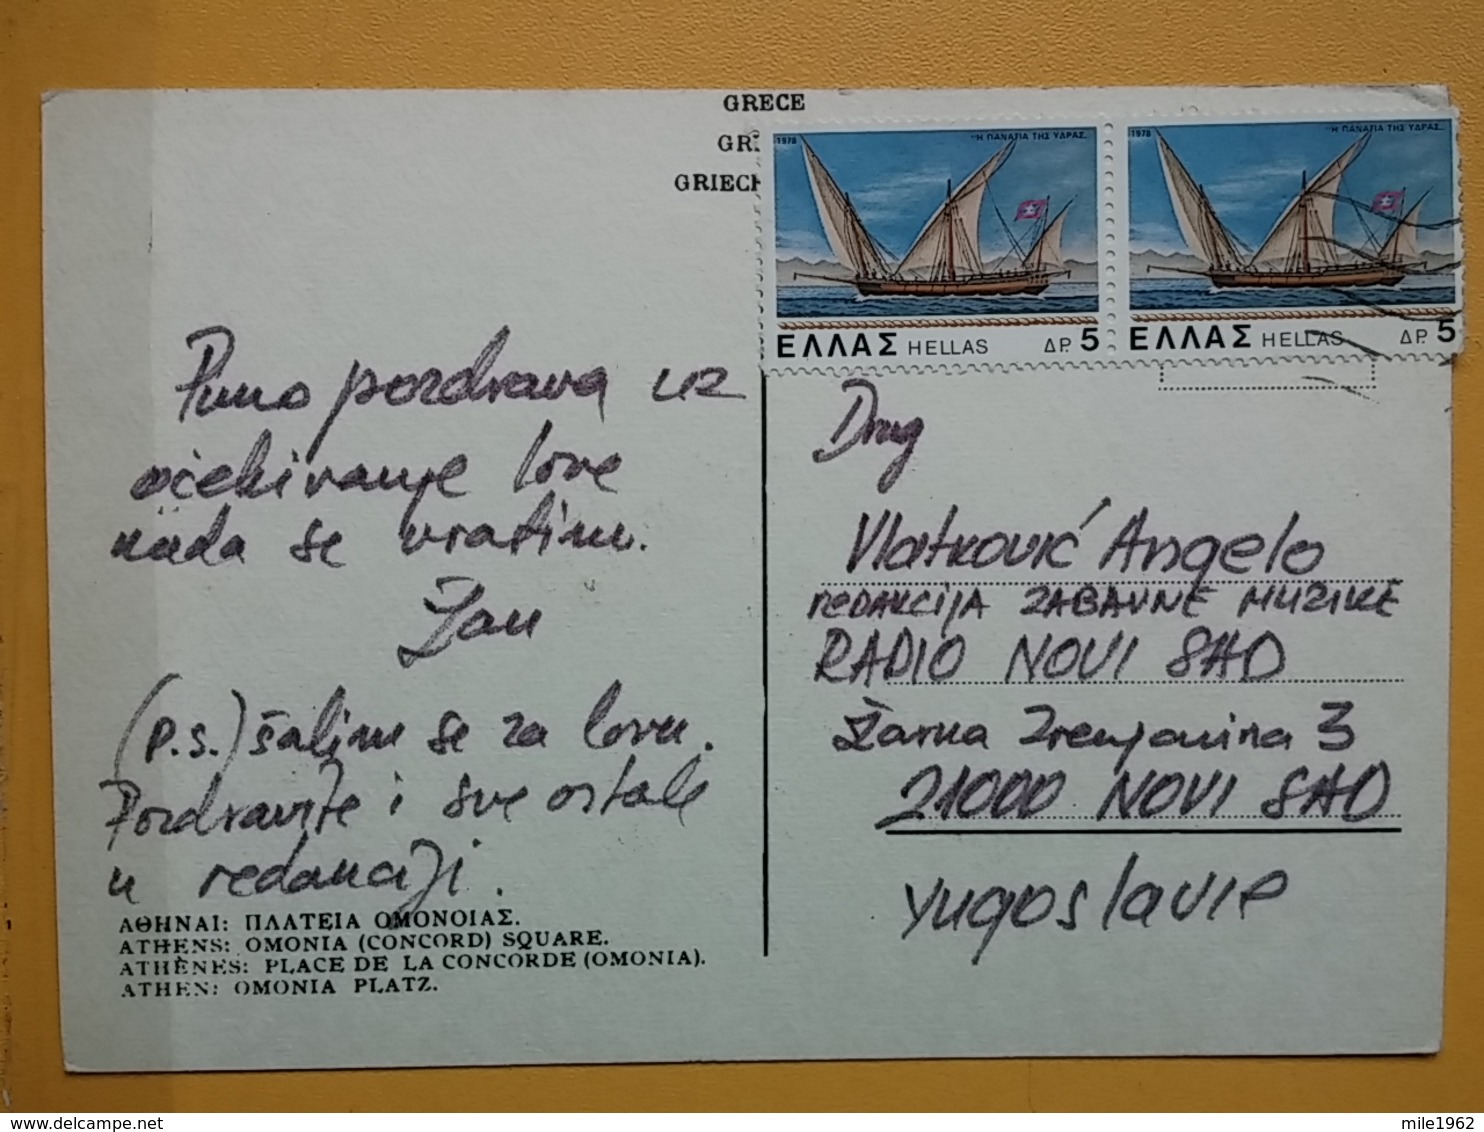 GRECE
GR
GRIECH
1978 "Η ΠΑΝΑΓΙΑ ΤΗΣ ΥΔΡΑΣ"
ΕΛΛΑΣ HELLAS ΔΡ. 5
1978 "Η ΠΑΝΑΓΙΑ ΤΗΣ ΥΔΡΑΣ"
ΕΛΛΑΣ HELLAS ΔΡ. 5
Puno pozdrava uz
očekivanje love
kada se vratim.
Žan
(P.S.) šalim se za lovu.
Pozdravite i sve ostale
u redakciji.
ΑΘΗΝΑΙ: ΠΛΑΤΕΙΑ ΟΜΟΝΟΙΑΣ.
ATHENS: OMONIA (CONCORD) SQUARE.
ATHÈNES: PLACE DE LA CONCORDE (OMONIA).
ATHEN: OMONIA PLATZ.
Drug
Vlatković Angelo
REDAKCIJA ZABAVNE MUZIKE
RADIO NOVI SAD
Žarka Zrenjanina 3
21000 NOVI SAD
Yugoslavie
mile1962